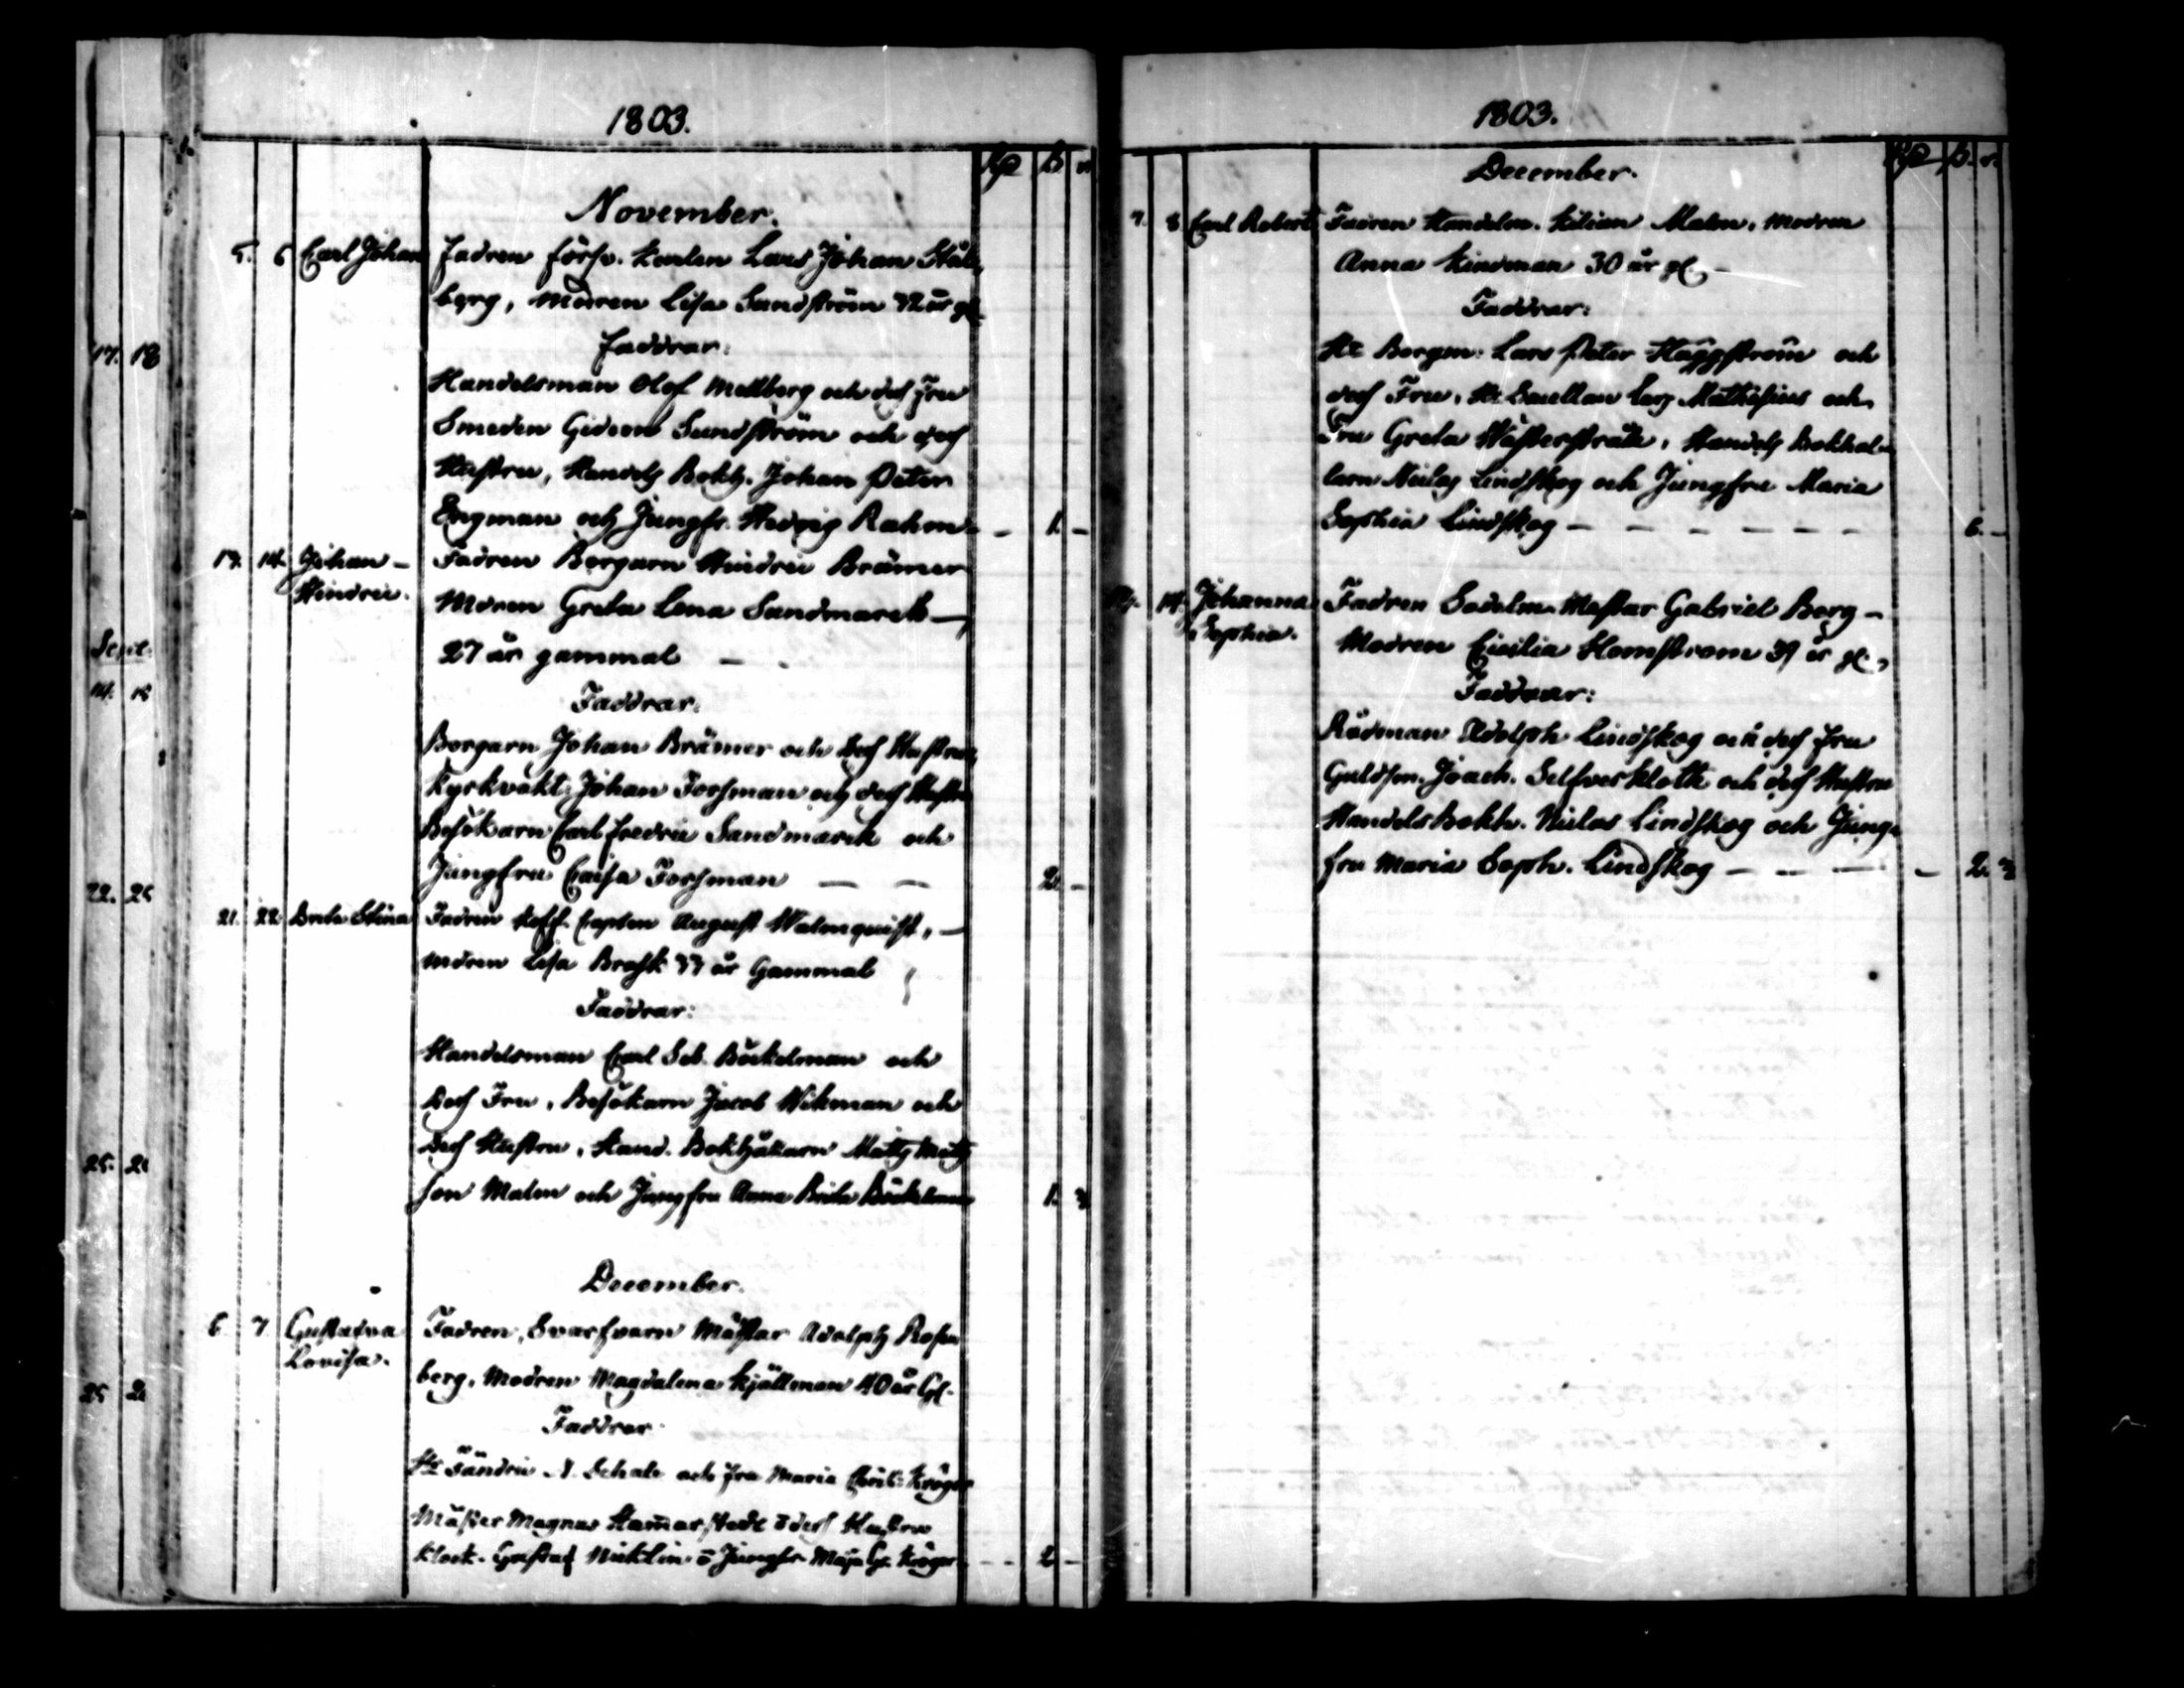 1803.
November.
5. 6 Carl Johan Fadren förse. Lars Johan Stål
berg, Modren Lisa Sundström 32 år gl.
Faddrar:
17. 18
Handelsman Olof Mellberg och dess Fru
Smeden Gideon Sundström och dess
Hustru, Handels Bokh. Johan Peter
Engman och Jungfr. Hedvig Rahm - 1. -
13. 14. Johan - Fadren Borgarn Hindric Brämer
Hindric. Modren Greta Lena Sandmarck -
Sept.
27 år gammal -
14. 15
Faddrar:
Borgarn Johan Brämer och dess Hustru,
Kyrkvakt. Johan Forsman och dess Hustru
Besökarn Carl Fredric Sandmarck och
Jungfru Caisa Forsman - - 2. -
22. 25
21. 22 Brita Stina Fadren Coopv. Capten August Malmquist, -
Modren Lisa Brask 33 år Gammal
Faddrar:
Handelsman Carl Seb. Böckelman och
dess Fru, Besökarn Jacob Wikman och
25. 2
dess Hustru, Hand. Bokhållarn Matts Matts
son Malm och Jungfru Anna Brita Böckelman 1.
December.
6 7 Gustava Fadren, Svarfvarn Mästar Adolph Rosen
Lovisa. berg, Modren Magdalena Kjällman 40 år Gl.
25 2
Faddrar
Hr Fändric N. Schale och Fru Maria Christ: Kröger
Mäster Magnus Hamarstedt o dess Hustru
Klock. Gustaf Nicklin o Jungfr Maja Gr. Kröger - - 2 -
1803.
December.
7. 8 Carl Robert Fadren Handelsm. Kilian Malm, Modren
Anna Kindman 30 år gl. -
Faddrar:
Hr Borgm: Lars Peter Häggström och
dess Fru, Hr Lars Mathesius och
Fru Greta Wästerstråle, Handels Bokhål-
larn Niclas Lindskog och Jungfru Maria
Sophia Lindskog - - - - - - 6. -
14. Johanna Fadren Sadelm. Mästar Gabriel Berg -
Sophia. Modren Cicilia Homstrom 39 år gl.,
Faddrar:
Rådman Adolph Lindskog och dess Fru
Guldsm. Joach. Selfverkloth och dess Hustru
Handels Bokh. Niclas Lindskog och Jung-
fru Maria Soph. Lindskog - - - - 2.